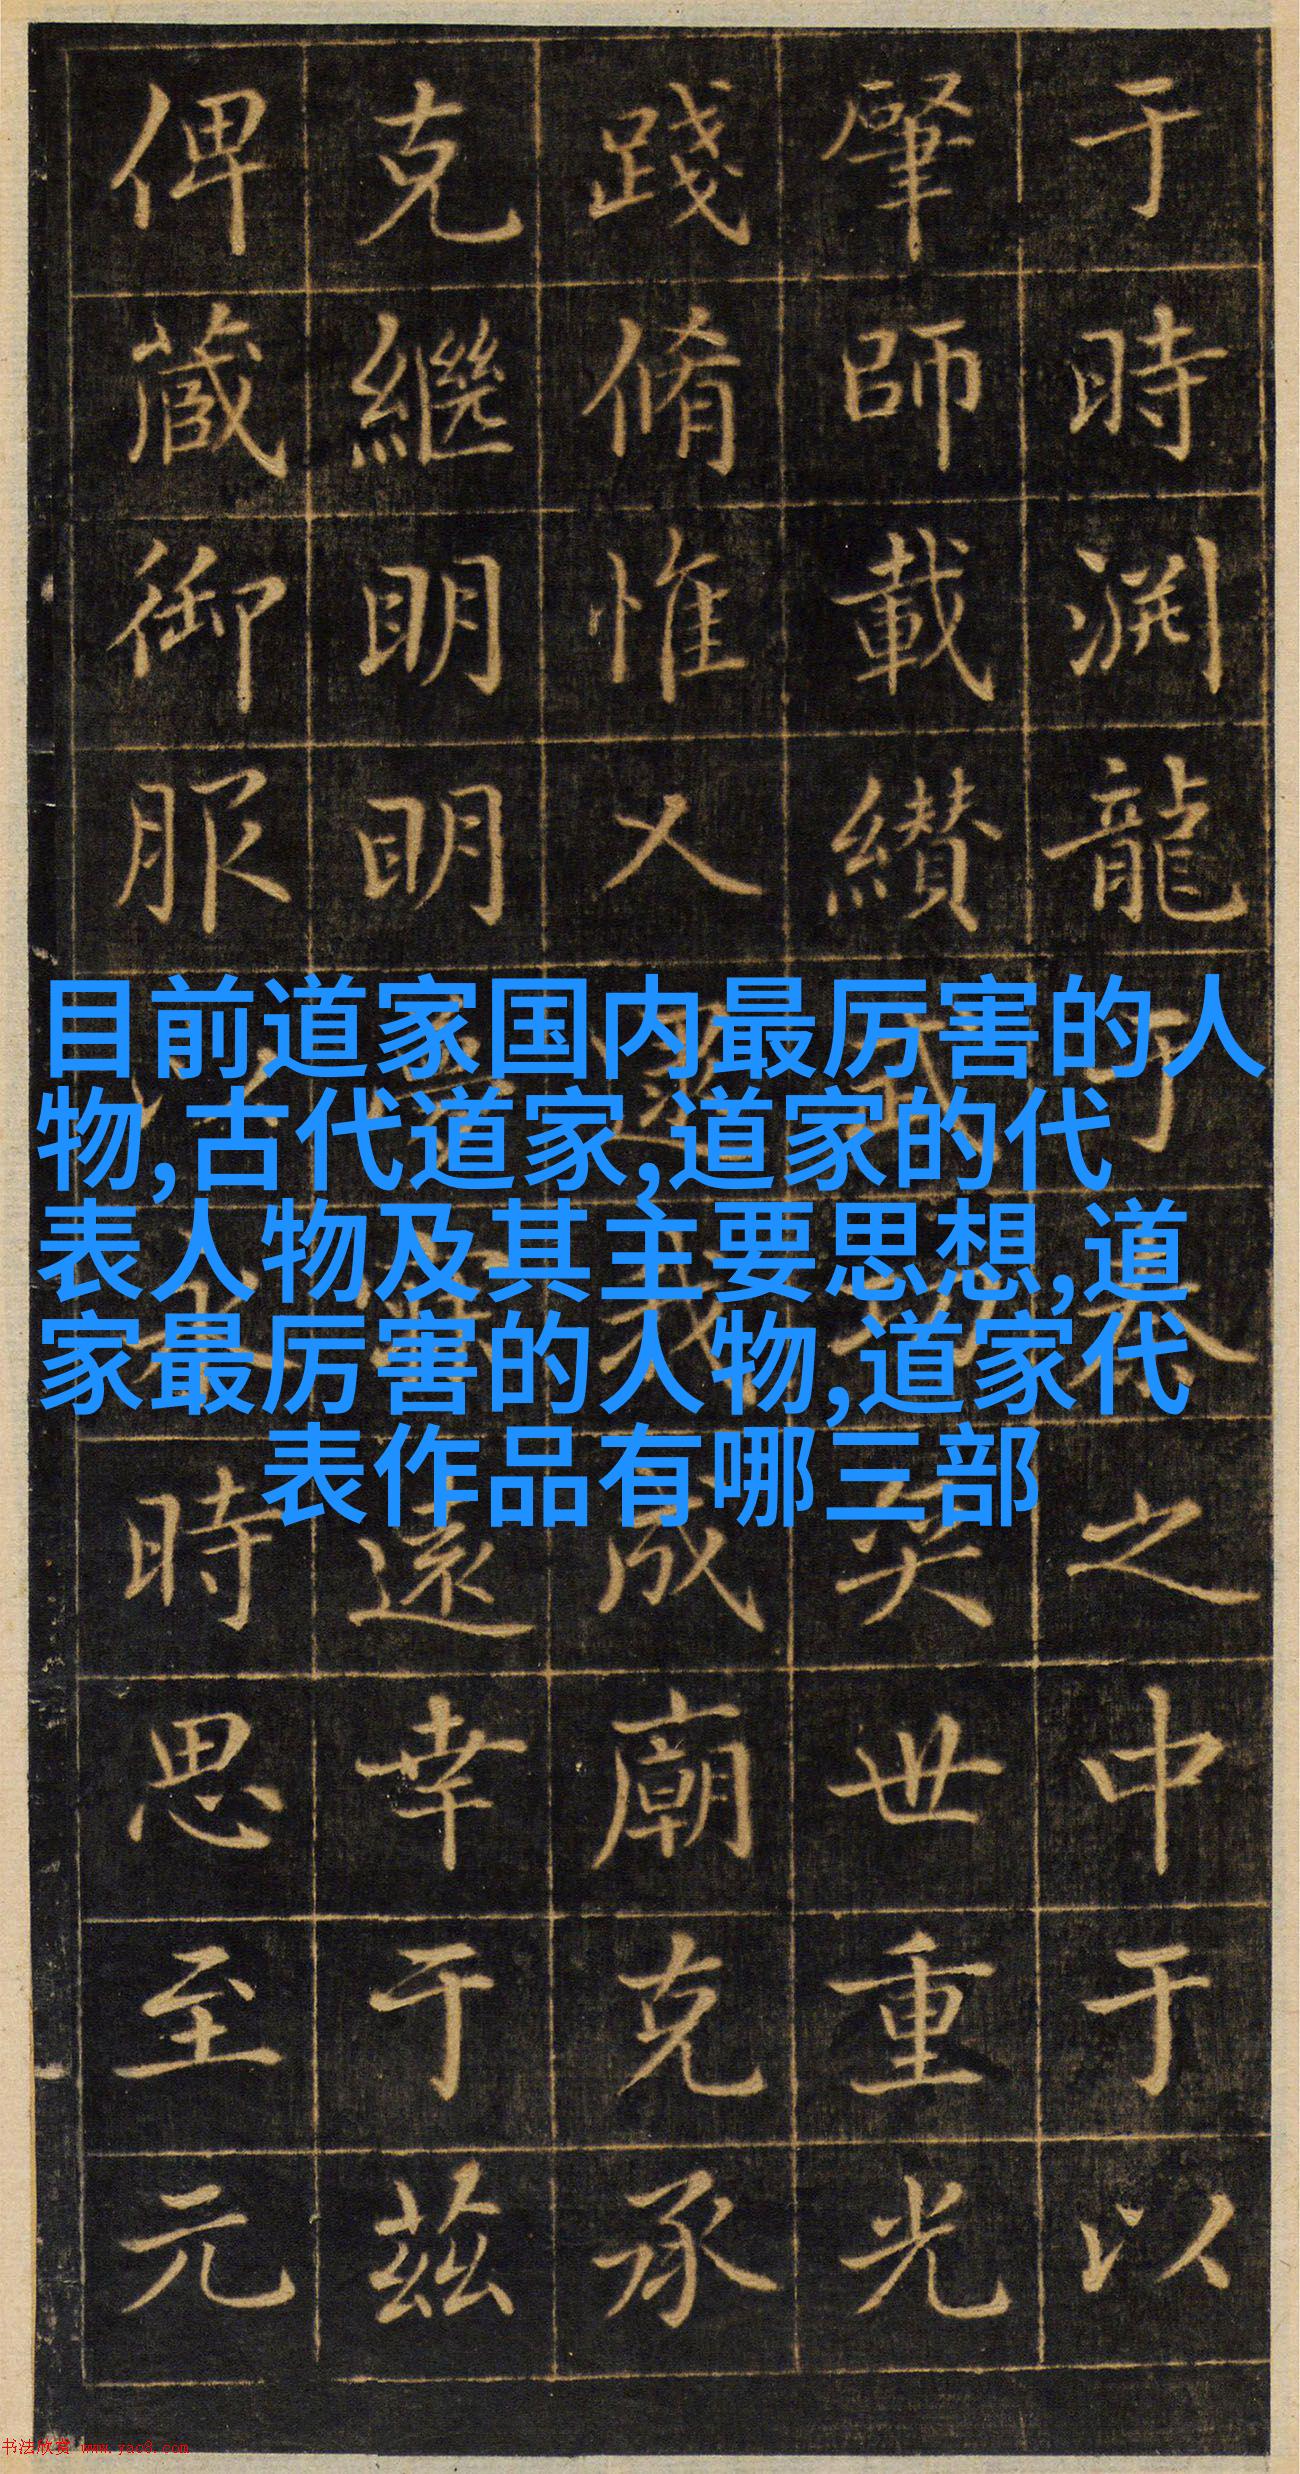 于時淵龍于
之中于以
肇師載纘武功奕世重光
踐脩惟乂
我成廟克承
克繼明明
遠幸于茲
俾蕆御服以
時思至元
目前道家国内最厉害的人
物,古代道家,道家的代
表人物及其主要思想,道
家最厉害的人物,道家代
表作品有哪三部
书法欣赏 www.yac8.com